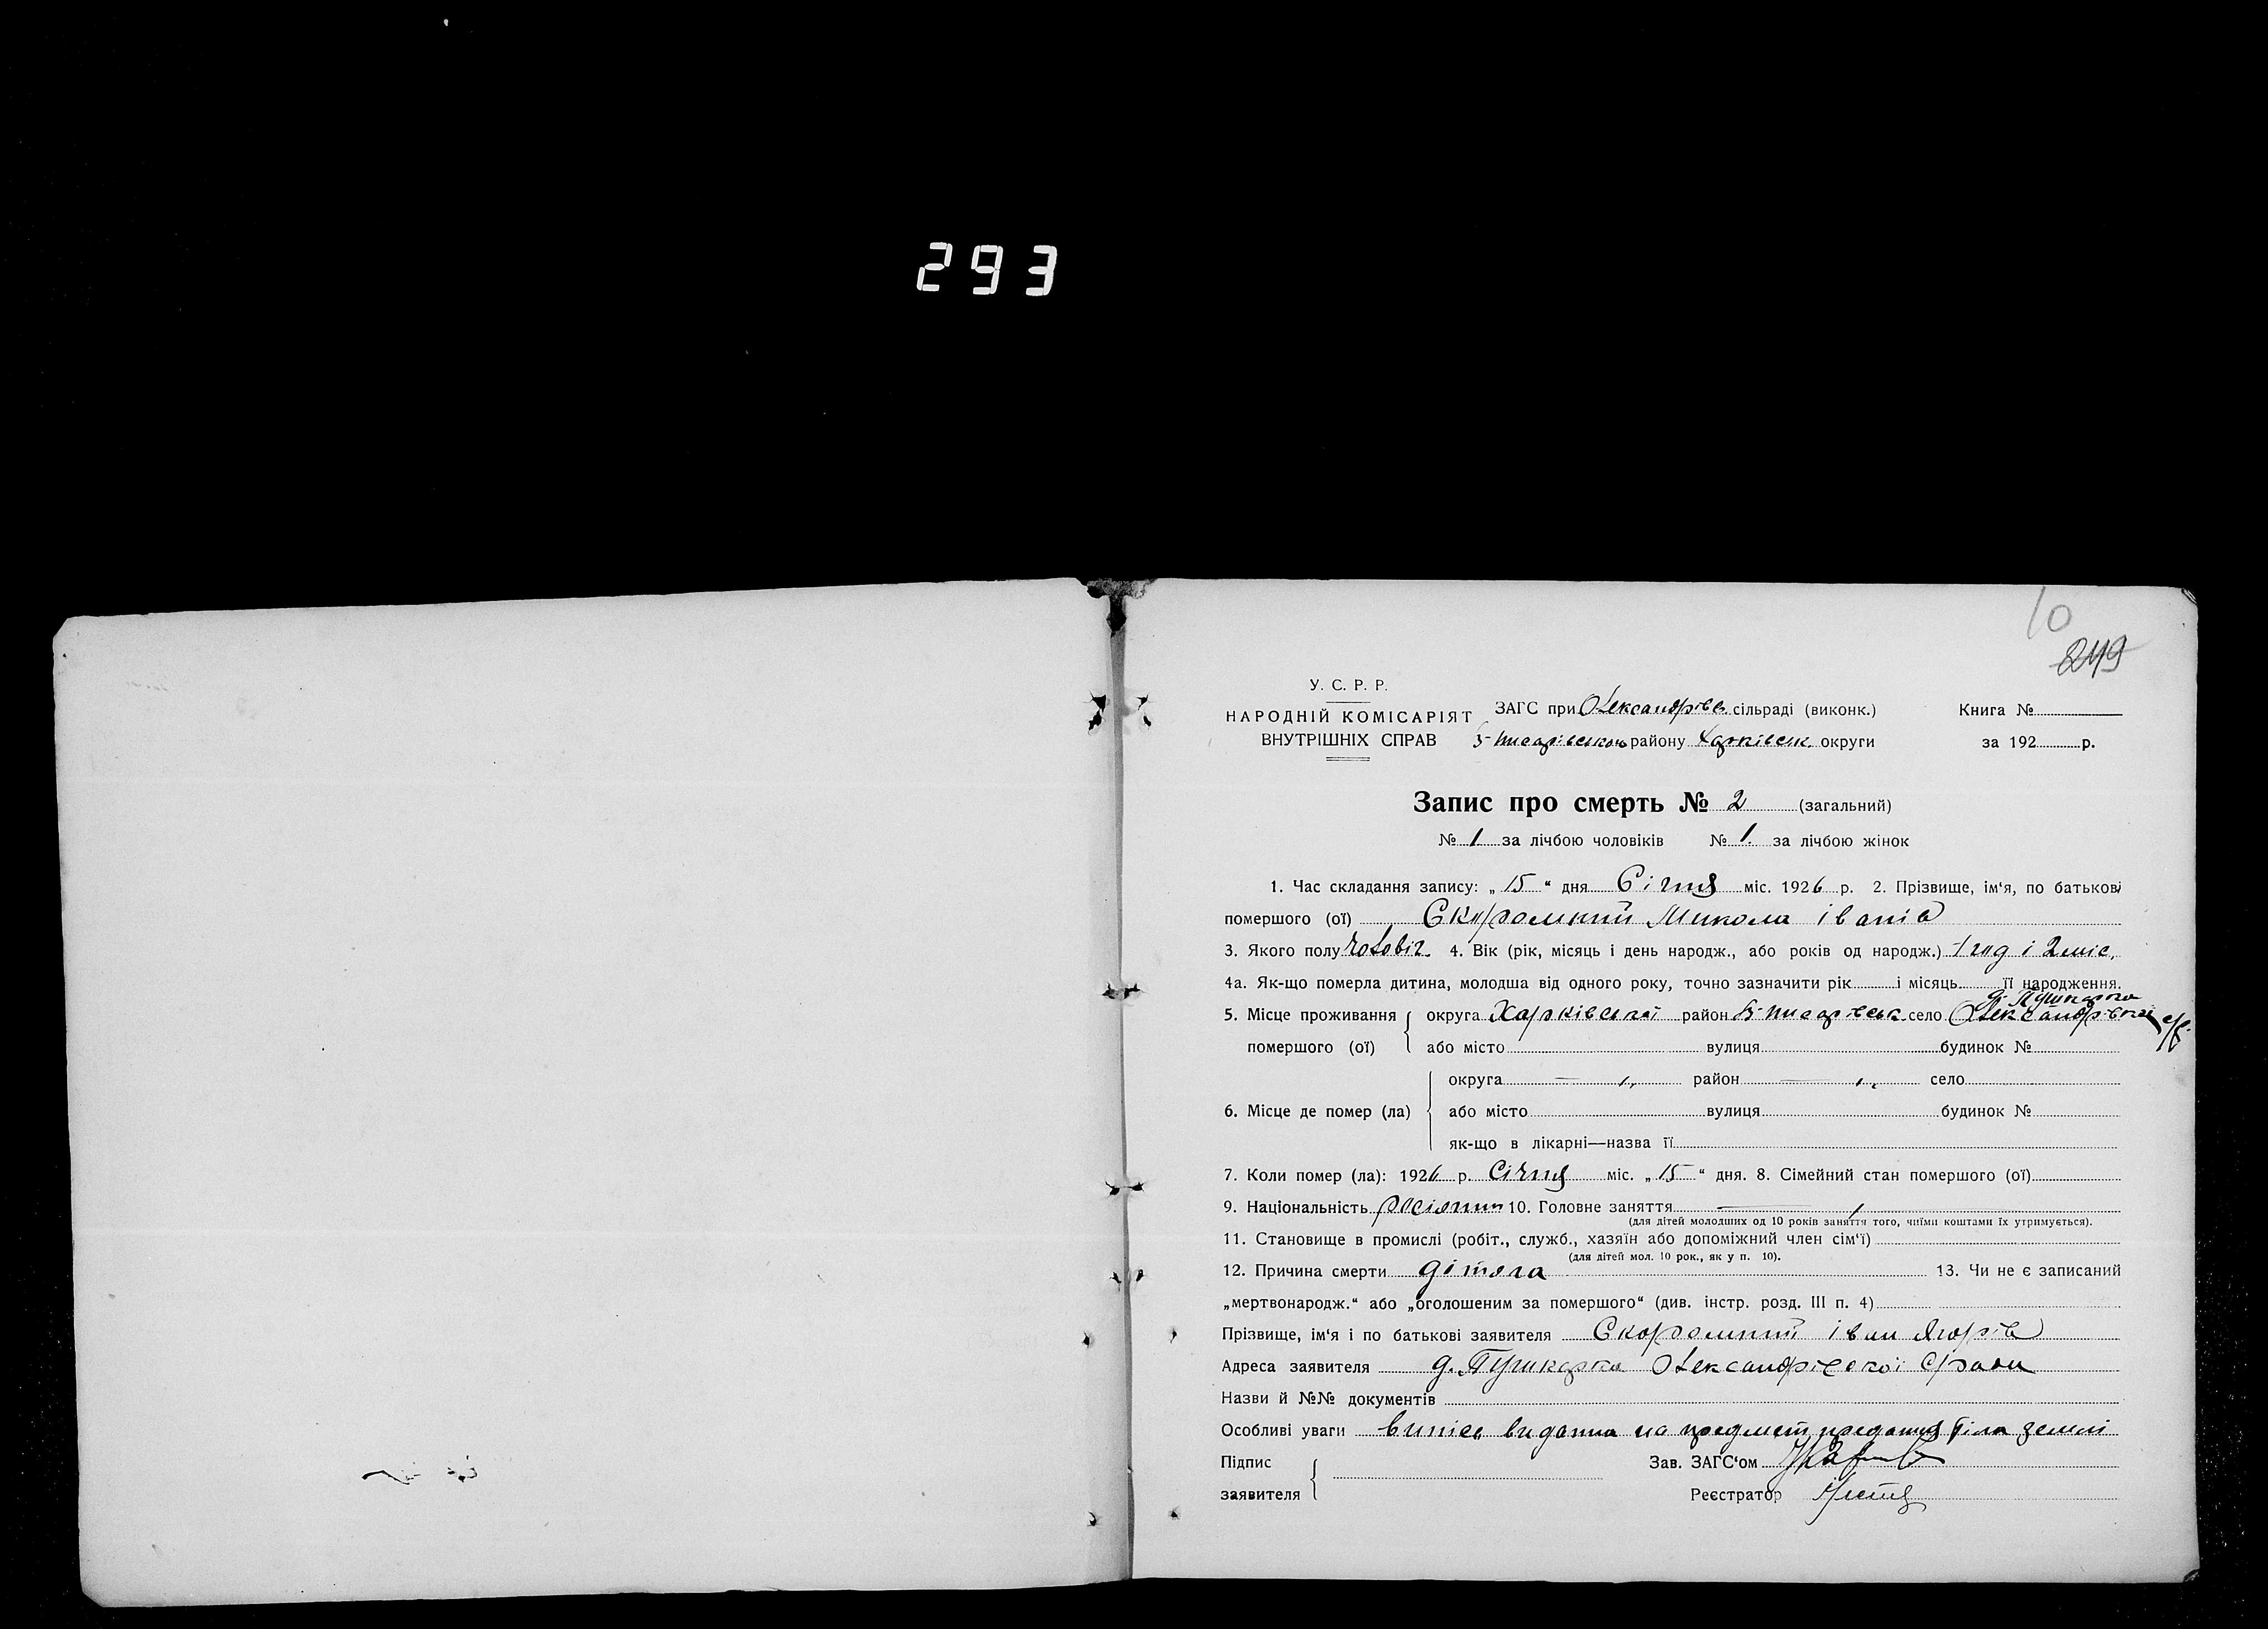 293
10
249
У. С. Р. Р.
НАРОДНІЙ КОМІСАРІЯТ
ВНУТРІШНІХ СПРАВ
ЗАГС при Олександрівс. сільраді (виконк.)
району Харківськ. округи
Книга №
за 192 р.
Запис про смерть № 2 (загальний)
№ 1 за лічбою чоловіків № 1. за лічбою жінок
1. Час складання запису: „ 15 “ дня Січня міс. 1926 р. 2. Прізвище, ім‘я, по батькові
помершого (ої) Скоромний Микола іванів
3. Якого полу чоловіч. 4. Вік (рік, місяць і день народж., або років од народж.) 1 год і 2 міс,
4а. Як-що померла дитина, молодша від одного року, точно зазначити рік і місяць її народження.
д. Пушкарка
5. Місце проживання округа Харківської район село Олександрівка с/р.
помершого (ої) або місто вулиця будинок №
округа — „ район — „ село
6. Місце де помер (ла) або місто вулиця будинок №
як-що в лікарні—назва її
7. Коли помер (ла): 1926 р. Січня міс. „ 15 “ дня. 8. Сімейний стан помершого (ої)
9. Національність росіянин 10. Головне заняття —
(для дітей молодших од 10 років заняття того, чиїми коштами їх утримується).
11. Становище в промислі (робіт., служб., хазяїн або допоміжний член сім‘ї)
(для дітей мол. 10 рок., як у п. 10).
12. Причина смерти 13. Чи не є записаний
„мертвонародж.“ або „оголошеним за помершого“ (див. інстр. розд. III п. 4)
Прізвище, ім‘я і по батькові заявителя Скоромний іван Ягорів
Адреса заявителя д. Пушкарка Олександрівської с/ради
Назви й №№ документів
Особливі уваги випись виданна на предмет предання тіла землі
Підпис
заявителя
Зав. ЗАГС‘ом
Реєстратор